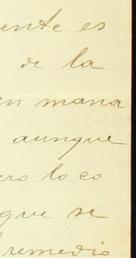 ente es
de la
en mana
aunque
ero loco
que se
remedio